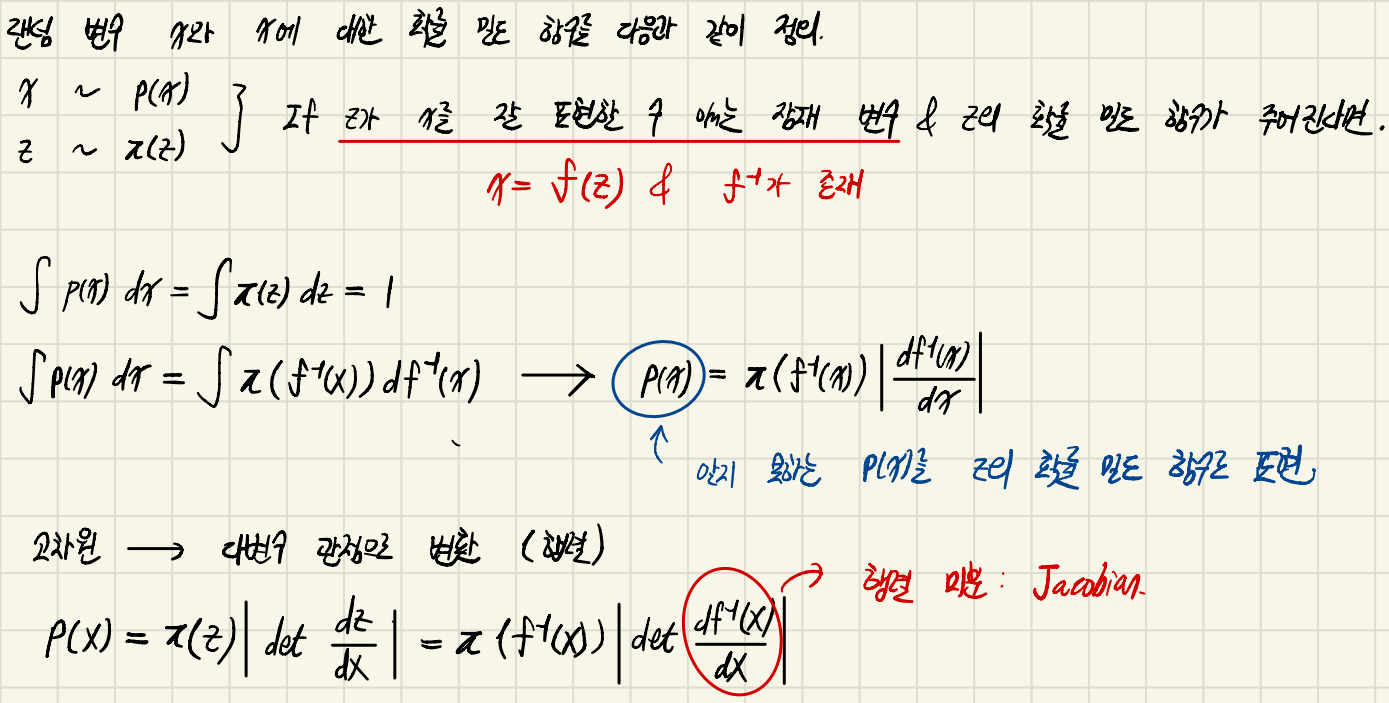 랜덤 변수 x와 x에 대한 확률 밀도 함수를 다음과 같이 정의.
x ~ p(x)
z ~ π(z)
} If z가 x를 잘 표현할 수 있는 잠재 변수 & z의 확률 밀도 함수가 주어진다면.
x = f(z) & f⁻¹가 존재
∫ p(x) dx = ∫ π(z) dz = 1
∫ p(x) dx = ∫ π(f⁻¹(x)) df⁻¹(x) → p(x) = π(f⁻¹(x)) |df⁻¹(x)/dx|
↑ 알지 못하는 p(x)를 z의 확률 밀도 함수로 표현
고차원 → 다변수 관점으로 변환 (행렬)
→ 행렬 미분 : Jacobian.
P(X) = π(z) | det dz/dX | = π (f⁻¹(X)) | det df⁻¹(X)/dX |